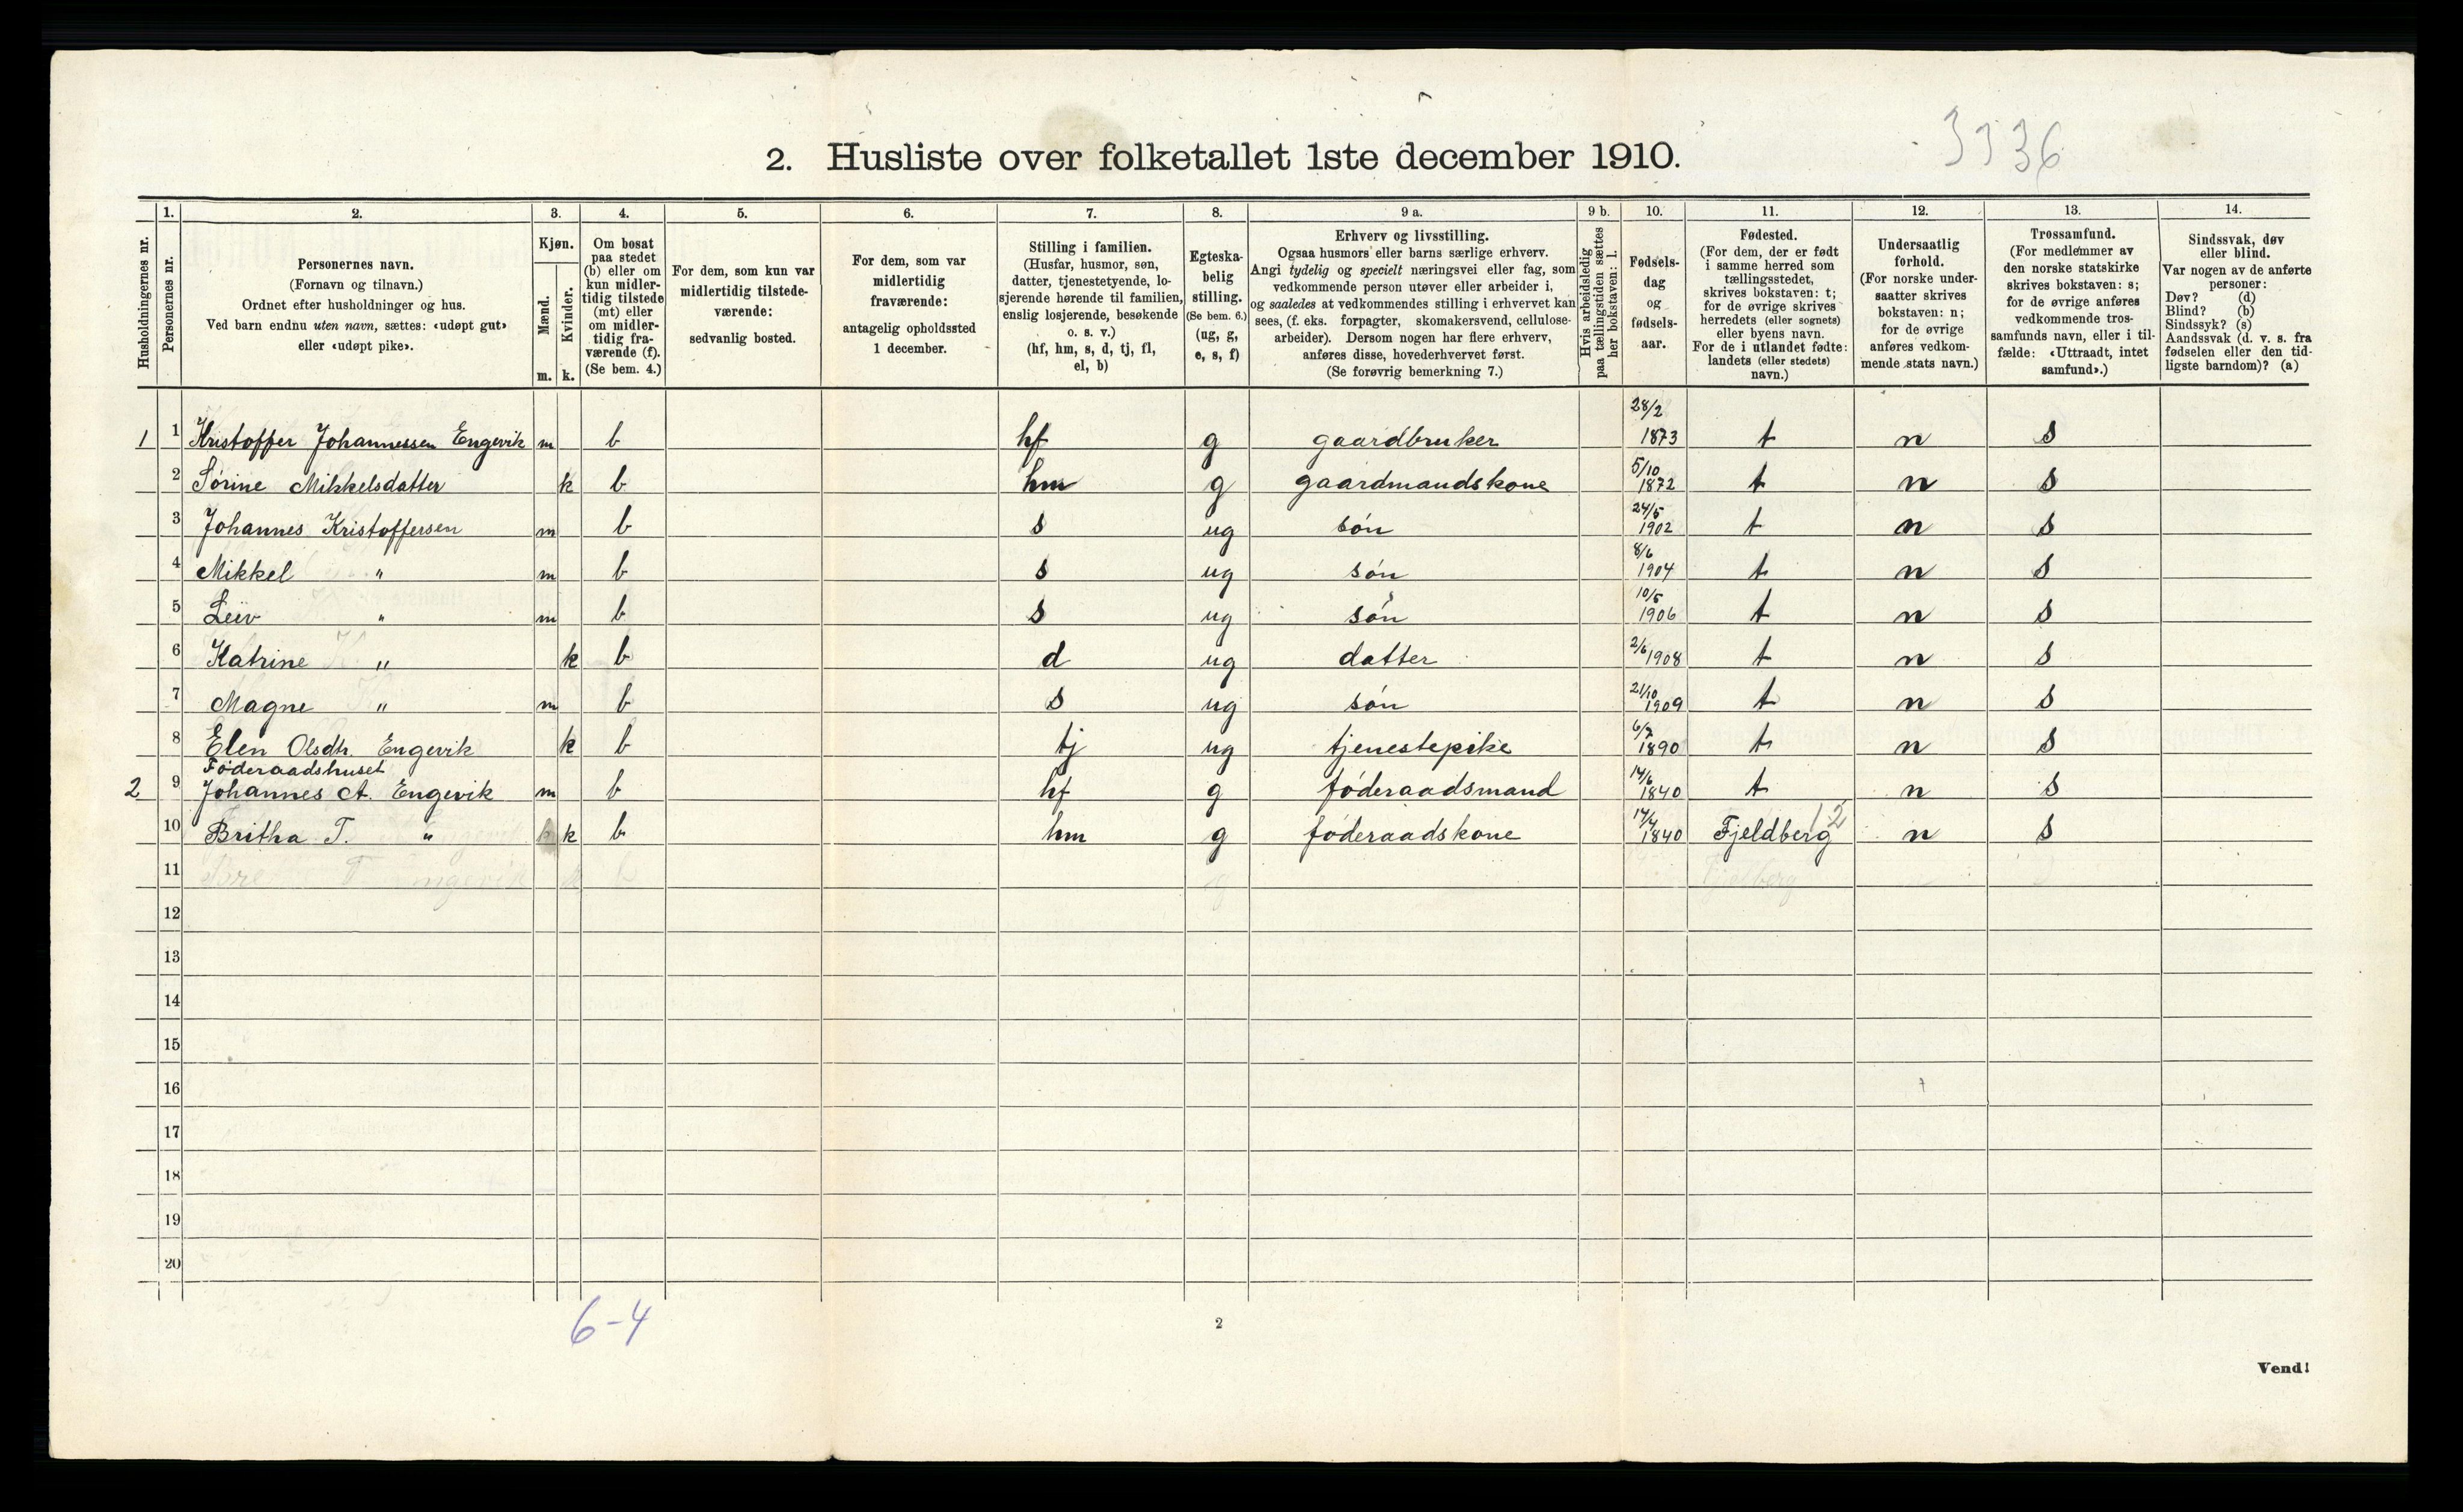 3336
2. Husliste over folketallet 1ste december 1910.
Husholdningernes nr.
1. Personernes nr.
2. Personernes navn.
(Fornavn og tilnavn.)
Ordnet efter husholdninger og hus.
Ved barn endnu uten navn, sættes: «udøpt gut»
eller «udøpt pike».
3. Kjøn.
Mænd. m.
Kvinder. k.
4. Om bosat
paa stedet
(b) eller om
kun midler-
tidig tilstede
(mt) eller
om midler-
tidig fra-
værende (f).
(Se bem. 4.)
5. For dem, som kun var
midlertidig tilstede-
værende:
sedvanlig bosted.
6. For dem, som var
midlertidig
fraværende:
antagelig opholdssted
1 december.
7. Stilling i familien.
(Husfar, husmor, søn,
datter, tjenestetyende, lo-
sjerende hørende til familien,
enslig losjerende, besøkende
o. s. v.)
(hf, hm, s, d, tj, fl,
el, b)
8. Egteska-
belig
stilling.
(Se bem. 6.)
(ug, g,
e, s, f)
9 a. Erhverv og livsstilling.
Ogsaa husmors eller barns særlige erhverv.
Angi tydelig og specielt næringsvei eller fag, som
vedkommende person utøver eller arbeider i,
og saaledes at vedkommendes stilling i erhvervet kan
sees, (f. eks. forpagter, skomakersvend, cellulose-
arbeider). Dersom nogen har flere erhverv,
anføres disse, hovederhvervet først.
(Se forøvrig bemerkning 7.)
9 b. Hvis arbeidsledig
paa tællingstiden sættes
her bokstaven: l.
10. Fødsels-
dag
og
fødsels-
aar.
11. Fødested.
(For dem, der er født
i samme herred som
tællingsstedet,
skrives bokstaven: t;
for de øvrige skrives
herredets (eller sognets)
eller byens navn.
For de i utlandet fødte:
landets (eller stedets)
navn.)
12. Undersaatlig
forhold.
(For norske under-
saatter skrives
bokstaven: n;
for de øvrige
anføres vedkom-
mende stats navn.)
13. Trossamfund.
(For medlemmer av
den norske statskirke
skrives bokstaven: s;
for de øvrige anføres
vedkommende tros-
samfunds navn, eller i til-
fælde: «Uttraadt, intet
samfund».)
14. Sindssvak, døv
eller blind.
Var nogen av de anførte
personer:
Døv? (d)
Blind? (b)
Sindssyk? (s)
Aandssvak (d. v. s. fra
fødselen eller den tid-
ligste barndom)? (a)
1 1 Kristoffer Johannessen Engevik m b hf g gaardbruker 28/2 1873 t n s
2 Sørine Mikkelsdatter k b hm g gaardmandskone 5/10 1872 t n s
3 Johannes Kristoffersen m b s ug søn 24/5 1902 t n s
4 Mikkel " m b s ug søn 8/6 1904 t n s
5 Leiv " m b s ug søn 10/5 1906 t n s
6 Katrine " k b d ug datter 2/6 1908 t n s
7 Magne " m b s ug søn 21/10 1909 t n s
8 Elen Olsdtr. Engevik k b tj ug tjenestepike 6/2 1890 t n s
Føderaadshuset
2 9 Johannes A. Engevik m b hf g føderaadsmand 14/6 1840 t n s
10 Britha T. " k b hm g føderaadskone 14/4 1840 Fjeldberg 12 n s
11
12
13
14
15
16
17
18
19
20
6-4
2
Vend!